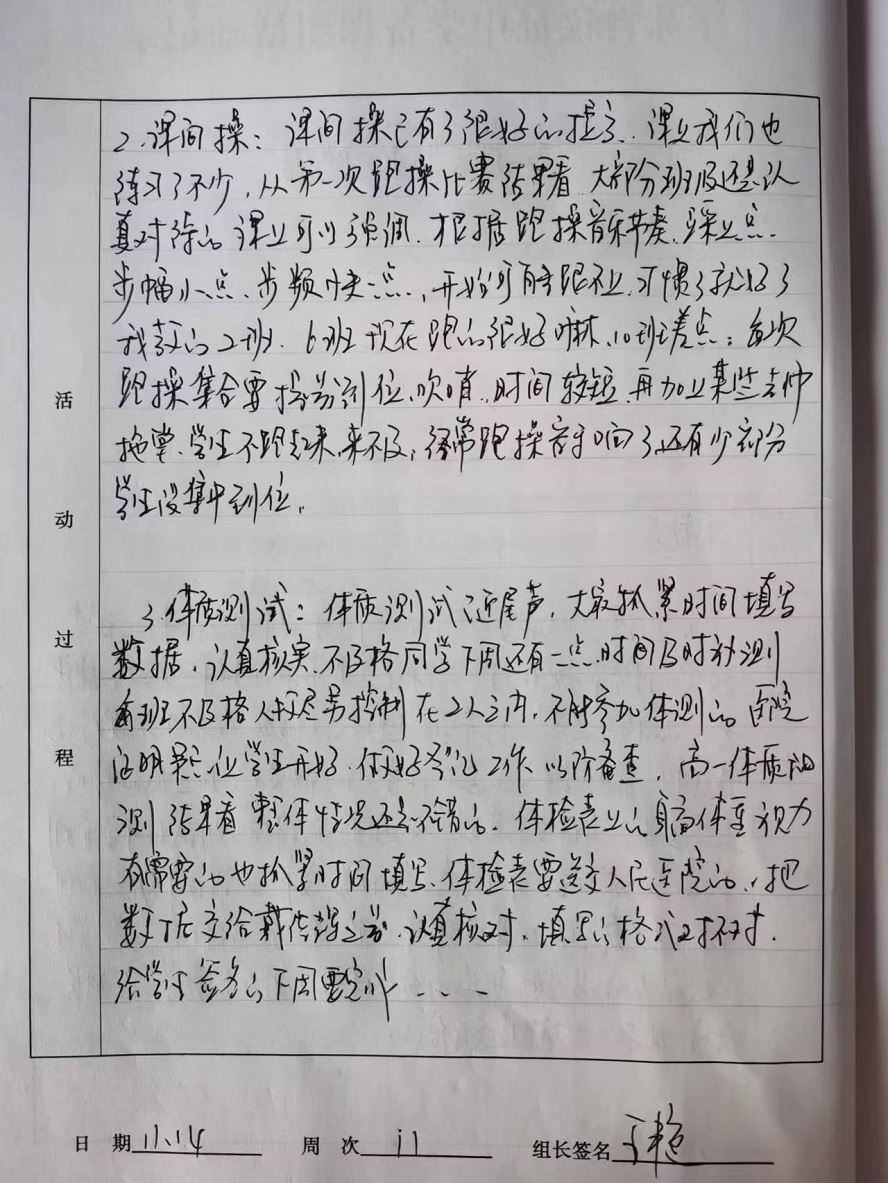 2、课间操：课间操已有了很好的提高、课上我们也
练习了不少，从第一次跑操比赛结果看 大部分班级还是认
真对待的 课上可以强调、根据跑操音乐节奏、踩上点、
步幅小点、步频快一点、开始可能跟不上、习惯了就好了
我教的2班、6班现在跑的很好嘛、10班差点；每次
跑操集合要提前到位、吹哨、时间较短、再加上某些老师
拖堂、学生不跑起来、来不及，经常跑操音乐响了、还有少部分
学生没集中到位。
3、体质测试：体质测试已近尾声，大家抓紧时间填写
数据，认真核实、不及格同学下周还有一点时间及时补测
每班不及格人数尽量控制在2人之内，不能参加体测的医院
证明 让学生开好、做好登记工作 以防备查，高一体质
测结果看 整体情况还是不错的、体检表上的身高体重视力
有需要的也抓紧时间填写、体检表要送交人民医院的，把
数据交给戴 之前、认真核对、填写的格式对不对、
给学生签名的下周要完成、、、
活
动
过
程
日 期 11.14 周 次 11 组长签名